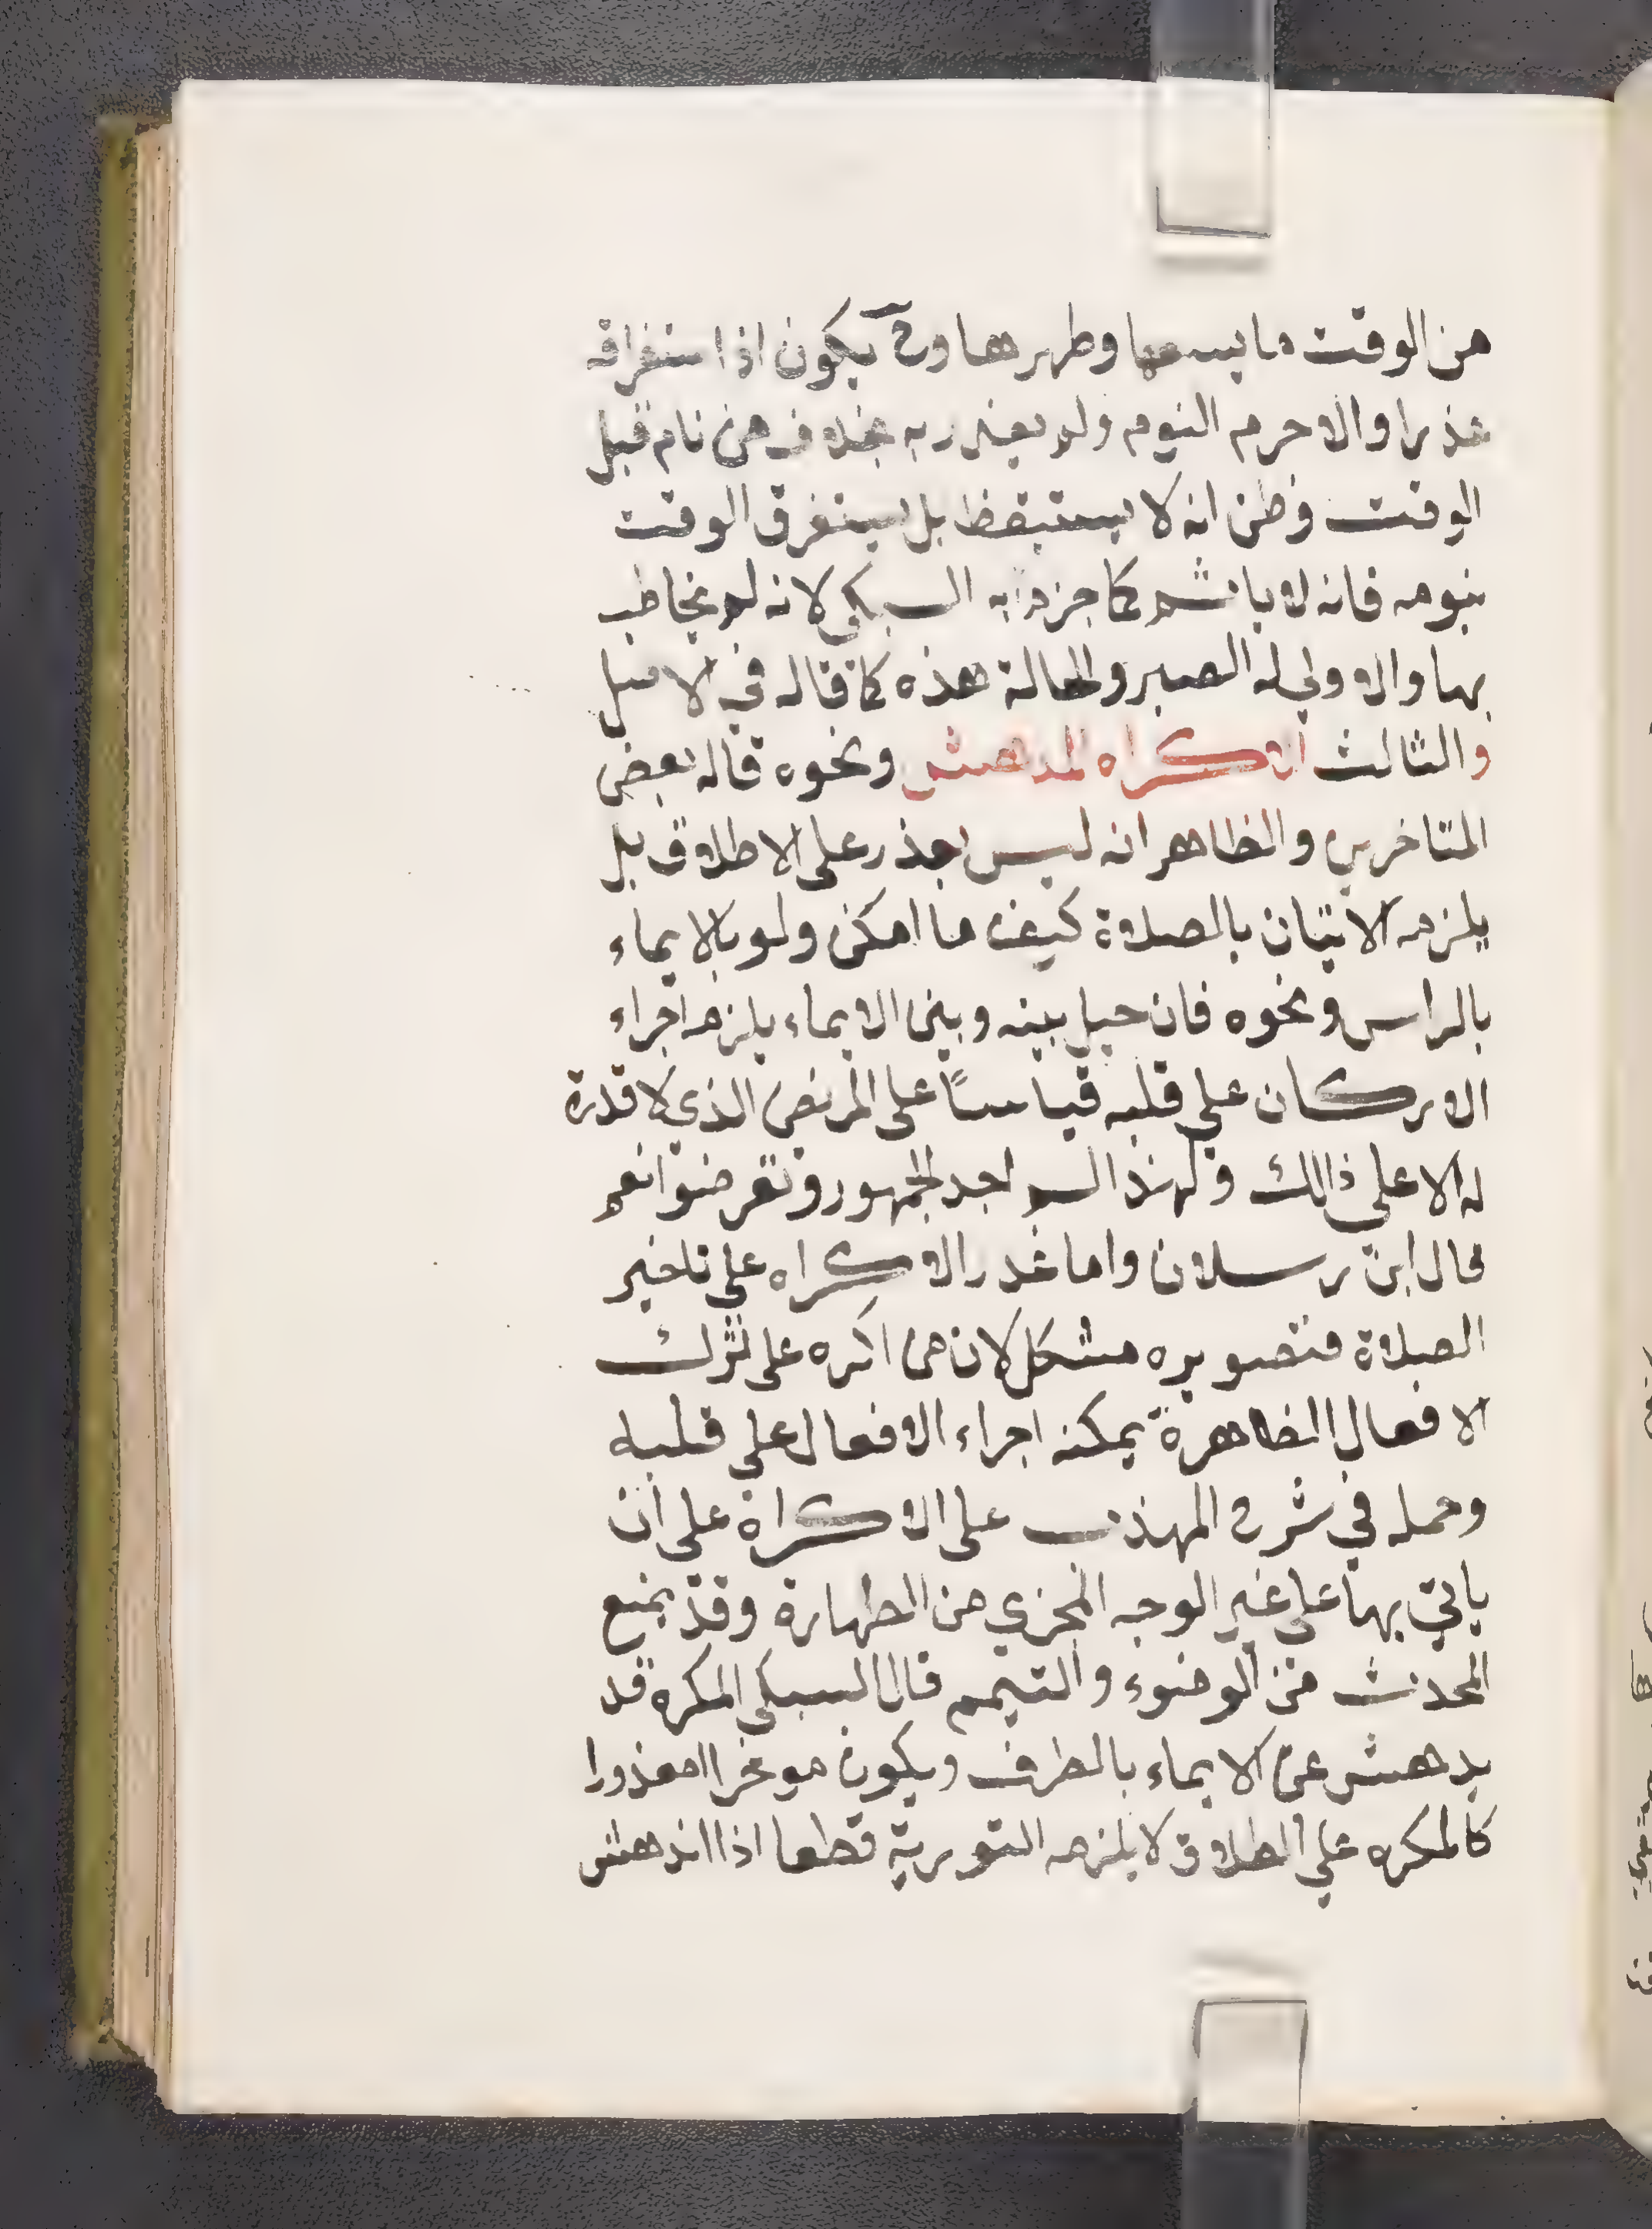 من الوقت ما يسعها وطهرها وح يكون اذا استغراقه
عذرا والا حرم النوم ولم يعذر به بخلاف من نام قبل
الوقت وظن انه لا يستيقظ بل يستغرق الوقت
بنومه فانه لا ياثم كما جزم به السبكي لانه لم يخاطب
بها والاولى له الصبر والحالة هذه كما قاله في الاصل
والثالث الاكراه المدهش ونحوه قاله بعض
المتاخرين والظاهر انه ليس بعذر على الاطلاق بل
يلزمه الاتيان بالصلاة كيف ما امكن ولو بالايماء
بالراس ونحوه فان حيل بينه وبين الايماء يلزمه اجراء
الاركان على قلبه قياسًا على المريض الذي لا قدرة
له الا على ذالك ولهذا لم اجد الجمهور وتعرضوا نعم
قال ابن رسلان واما عذر الاكراه على تاخير
الصلاة فتصويره مشكل لان من اكره على ترك
الافعال الظاهرة يمكنه اجراء الافعال على قلبه
وحمله في شرح المهذب على الاكراه على ان
ياتي بها على غير الوجه المجزي من الطهارة وقد يمنع
المحدث من الوضوء والتيمم قال السبكي المكره قد
يدهش عن الايماء بالطرف ويكون موخرا معذورا
كالمكره على الطلاق لا يلزمه التورية قطعا اذا اندهش